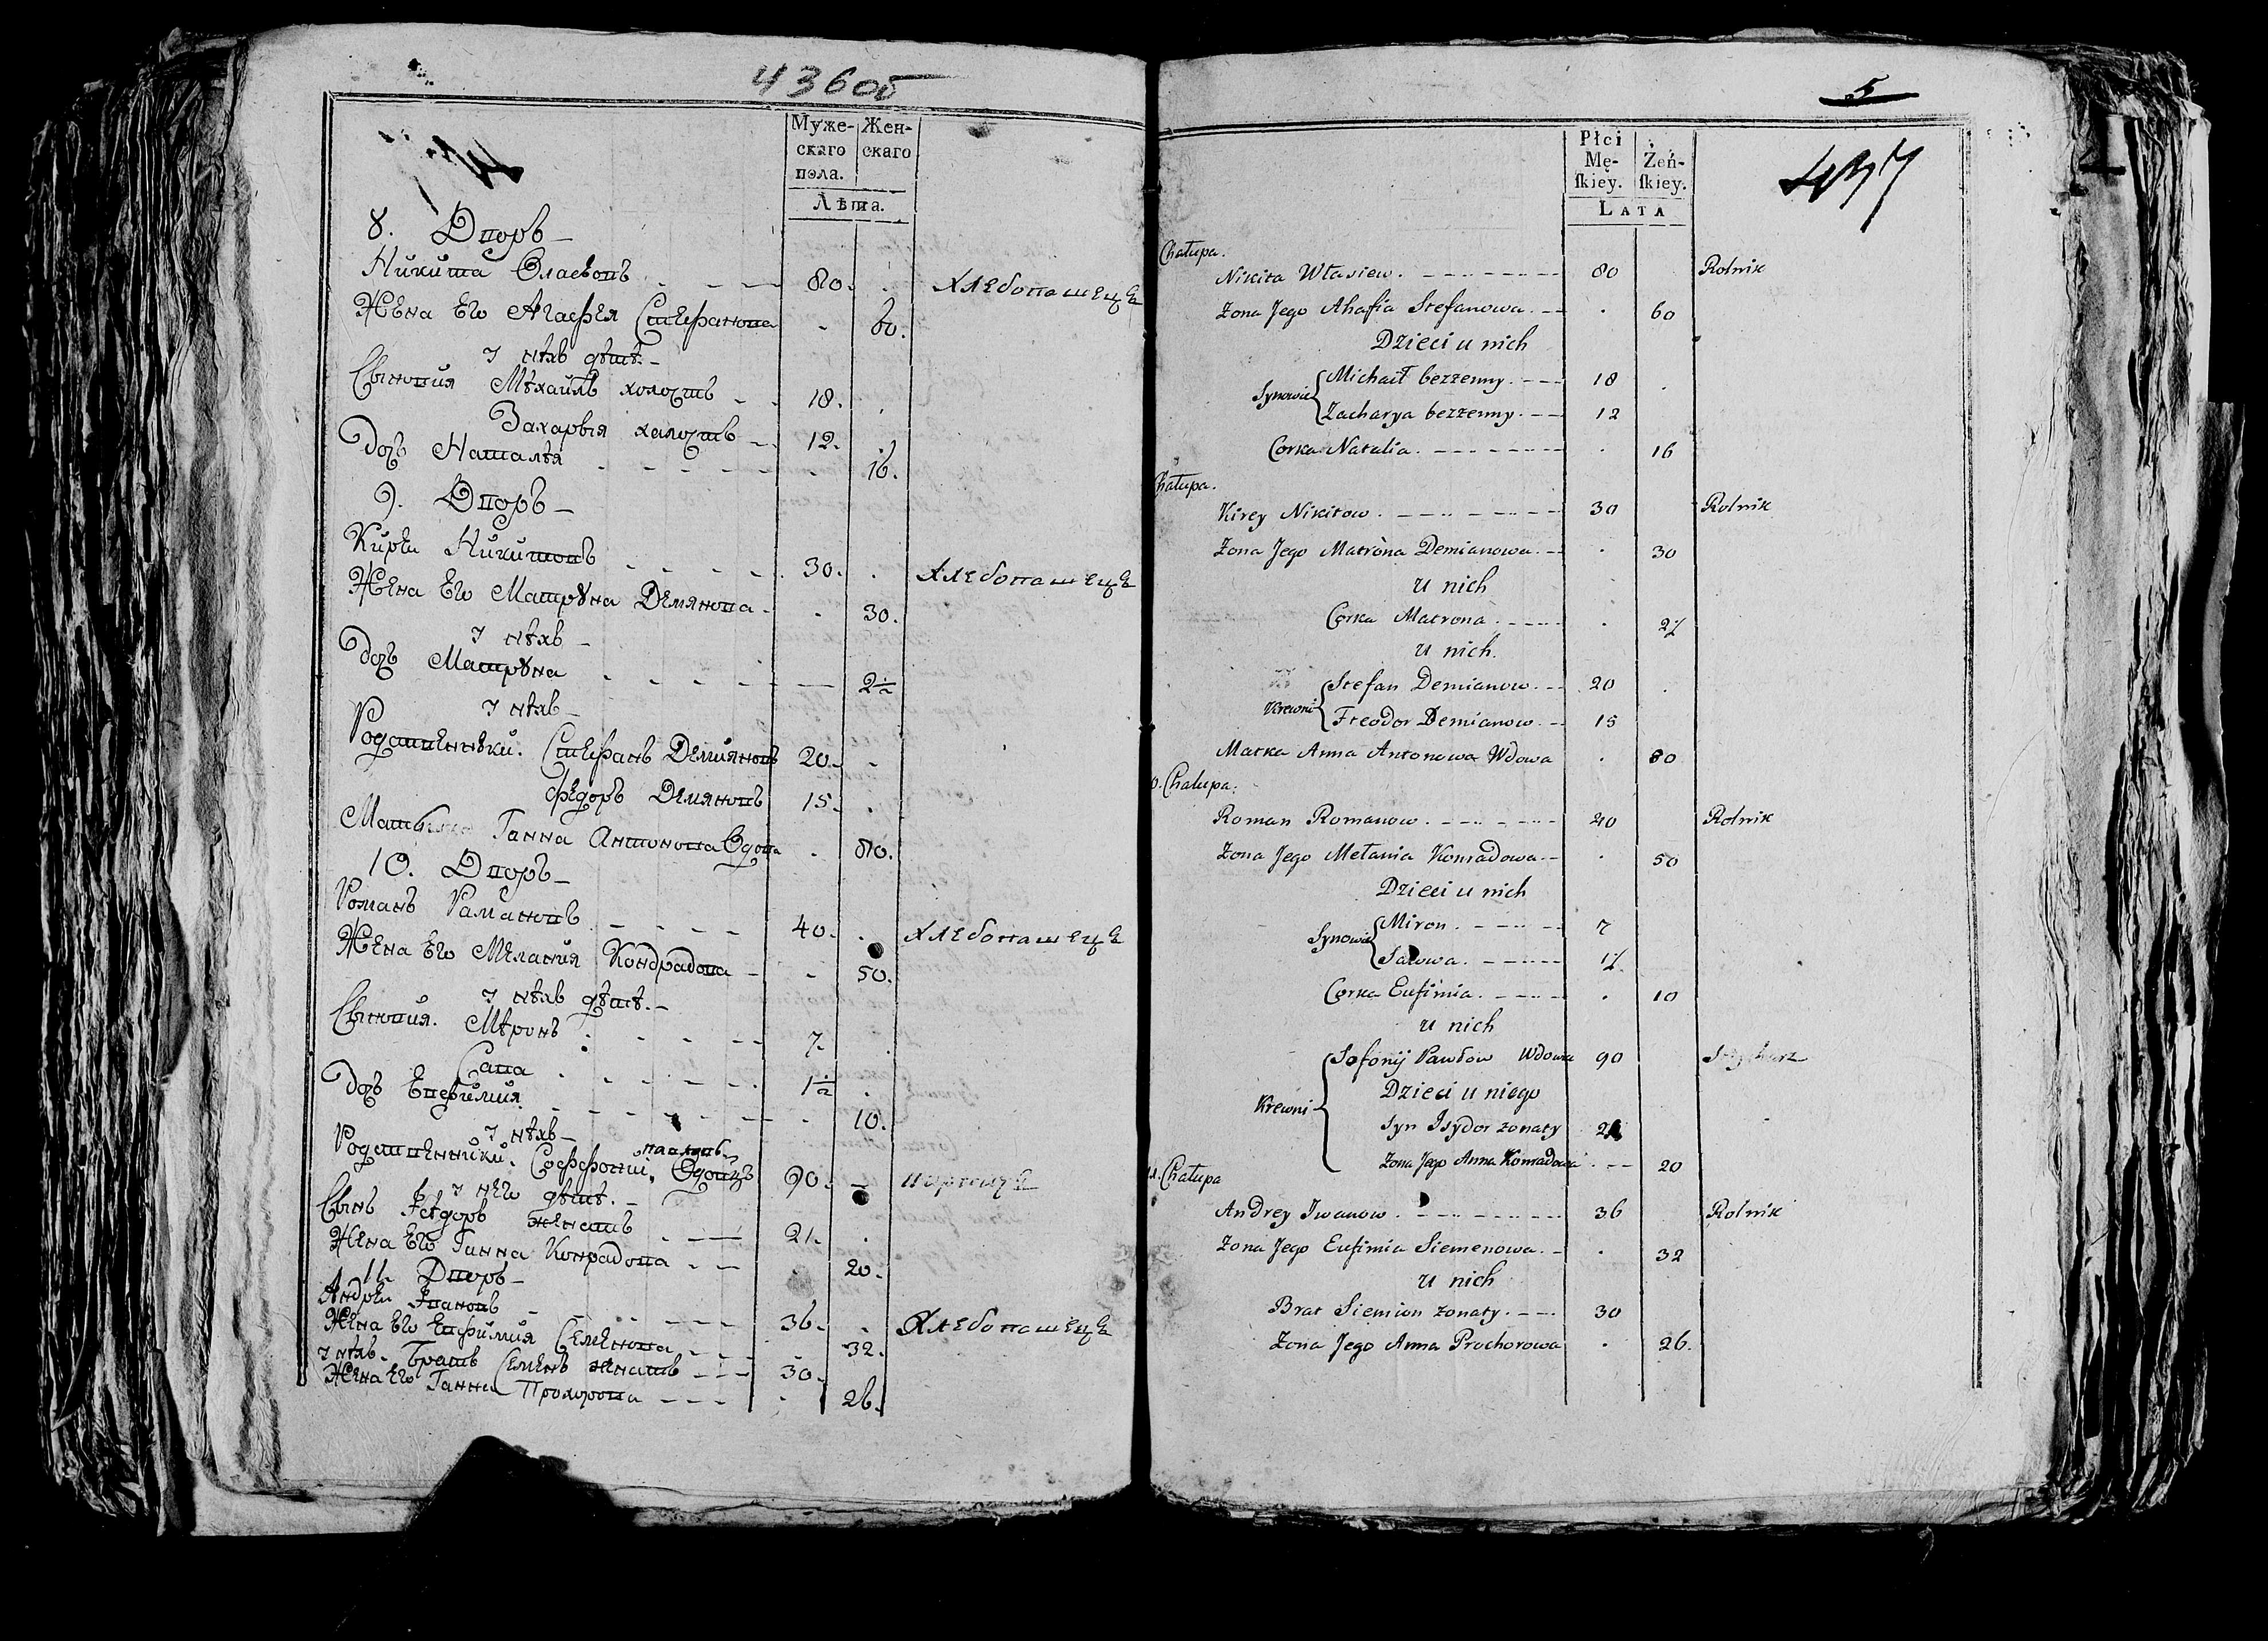 436об
Муже- Жен-
скаго скаго
пола.
Лѣта.
8. Дворъ
Никита Власьевъ 80. Хлебопашецъ
Жена Его Агафья Стефанова 60.
У нѣхъ дѣти.
Сыновия Мѣхайлъ холостъ 18.
Захарыя халостъ 12.
Дочь Наталѣя 16.
9. Дворъ
Кирѣи Никитовъ 30. Хлебопашецъ
Жена Его Матрѫна Демянова 30.
У нѣхъ
Дочь Матрѫна 2½
У нѣхъ
Родственнѣки. Стефанъ Демияновъ 20.
Федоръ Демяновъ 15.
Мать Ганна Антонова Вдова 80.
10. Дворъ
Романъ Рамановъ 40. Хлебопашецъ
Жена Его Мелания Кондрадова 50.
У нѣхъ дѣти.
Сыновия. Мѣронъ 7.
Сава 1½
Дочь Евефимия 10.
У нѣхъ
павловъ
Родственники. Софроний, Вдовецъ 90.
У него дѣти.
Сынъ Ісѣдоръ женатъ 21.
Жена Его Ганна Конрадова 20.
11. Дворъ
Андрѣи Ивановъ 36. Хлебопашецъ
Жена Его Евфимия Семенова 32.
У нѣхъ. Братъ Семенъ женатъ 30.
Жена Его Ганна Прохорова 26.
5
437
Płci
Mę- Żeń-
ſkiey. ſkiey.
LATA
Chałupa.
Nikita Własiew. 80 Rolnik
Zona Jego Ahafia Stefanowa. 60
Dzieci u nich
Synowie Michaił bezzenny. 18
Zacharya bezzenny. 12
Corka Natalia. 16
Chałupa.
Kirey Nikitow. 30 Rolnik
Zona Jego Matrona Demianowa. 30
u nich
Corka Matrona 2½
u nich.
Krewni Stefan Demianow. 20
Fteodor Demianow. 15
Matka Anna Antonowa Wdowa 80
0. Chałupa.
Roman Romanow. 40 Rolnik
Zona Jego Mełania Konradowa 50
Dzieci u nich
Synowie Miron. 7
Sawowa. 1½
Corka Eufimia. 10
u nich
Krewni Sofonij Pawłow Wdowiec 90
Dzieci u niego
Syn Isydor zonaty 21
Zona Jego Anna Konradowa 20
11. Chałupa
Andrey Iwanow. 36 Rolnik
Zona Jego Eufimia Siemenowa. 32
u nich
Brat Siemion zonaty. 30
Zona Jego Anna Prochorowa 26.